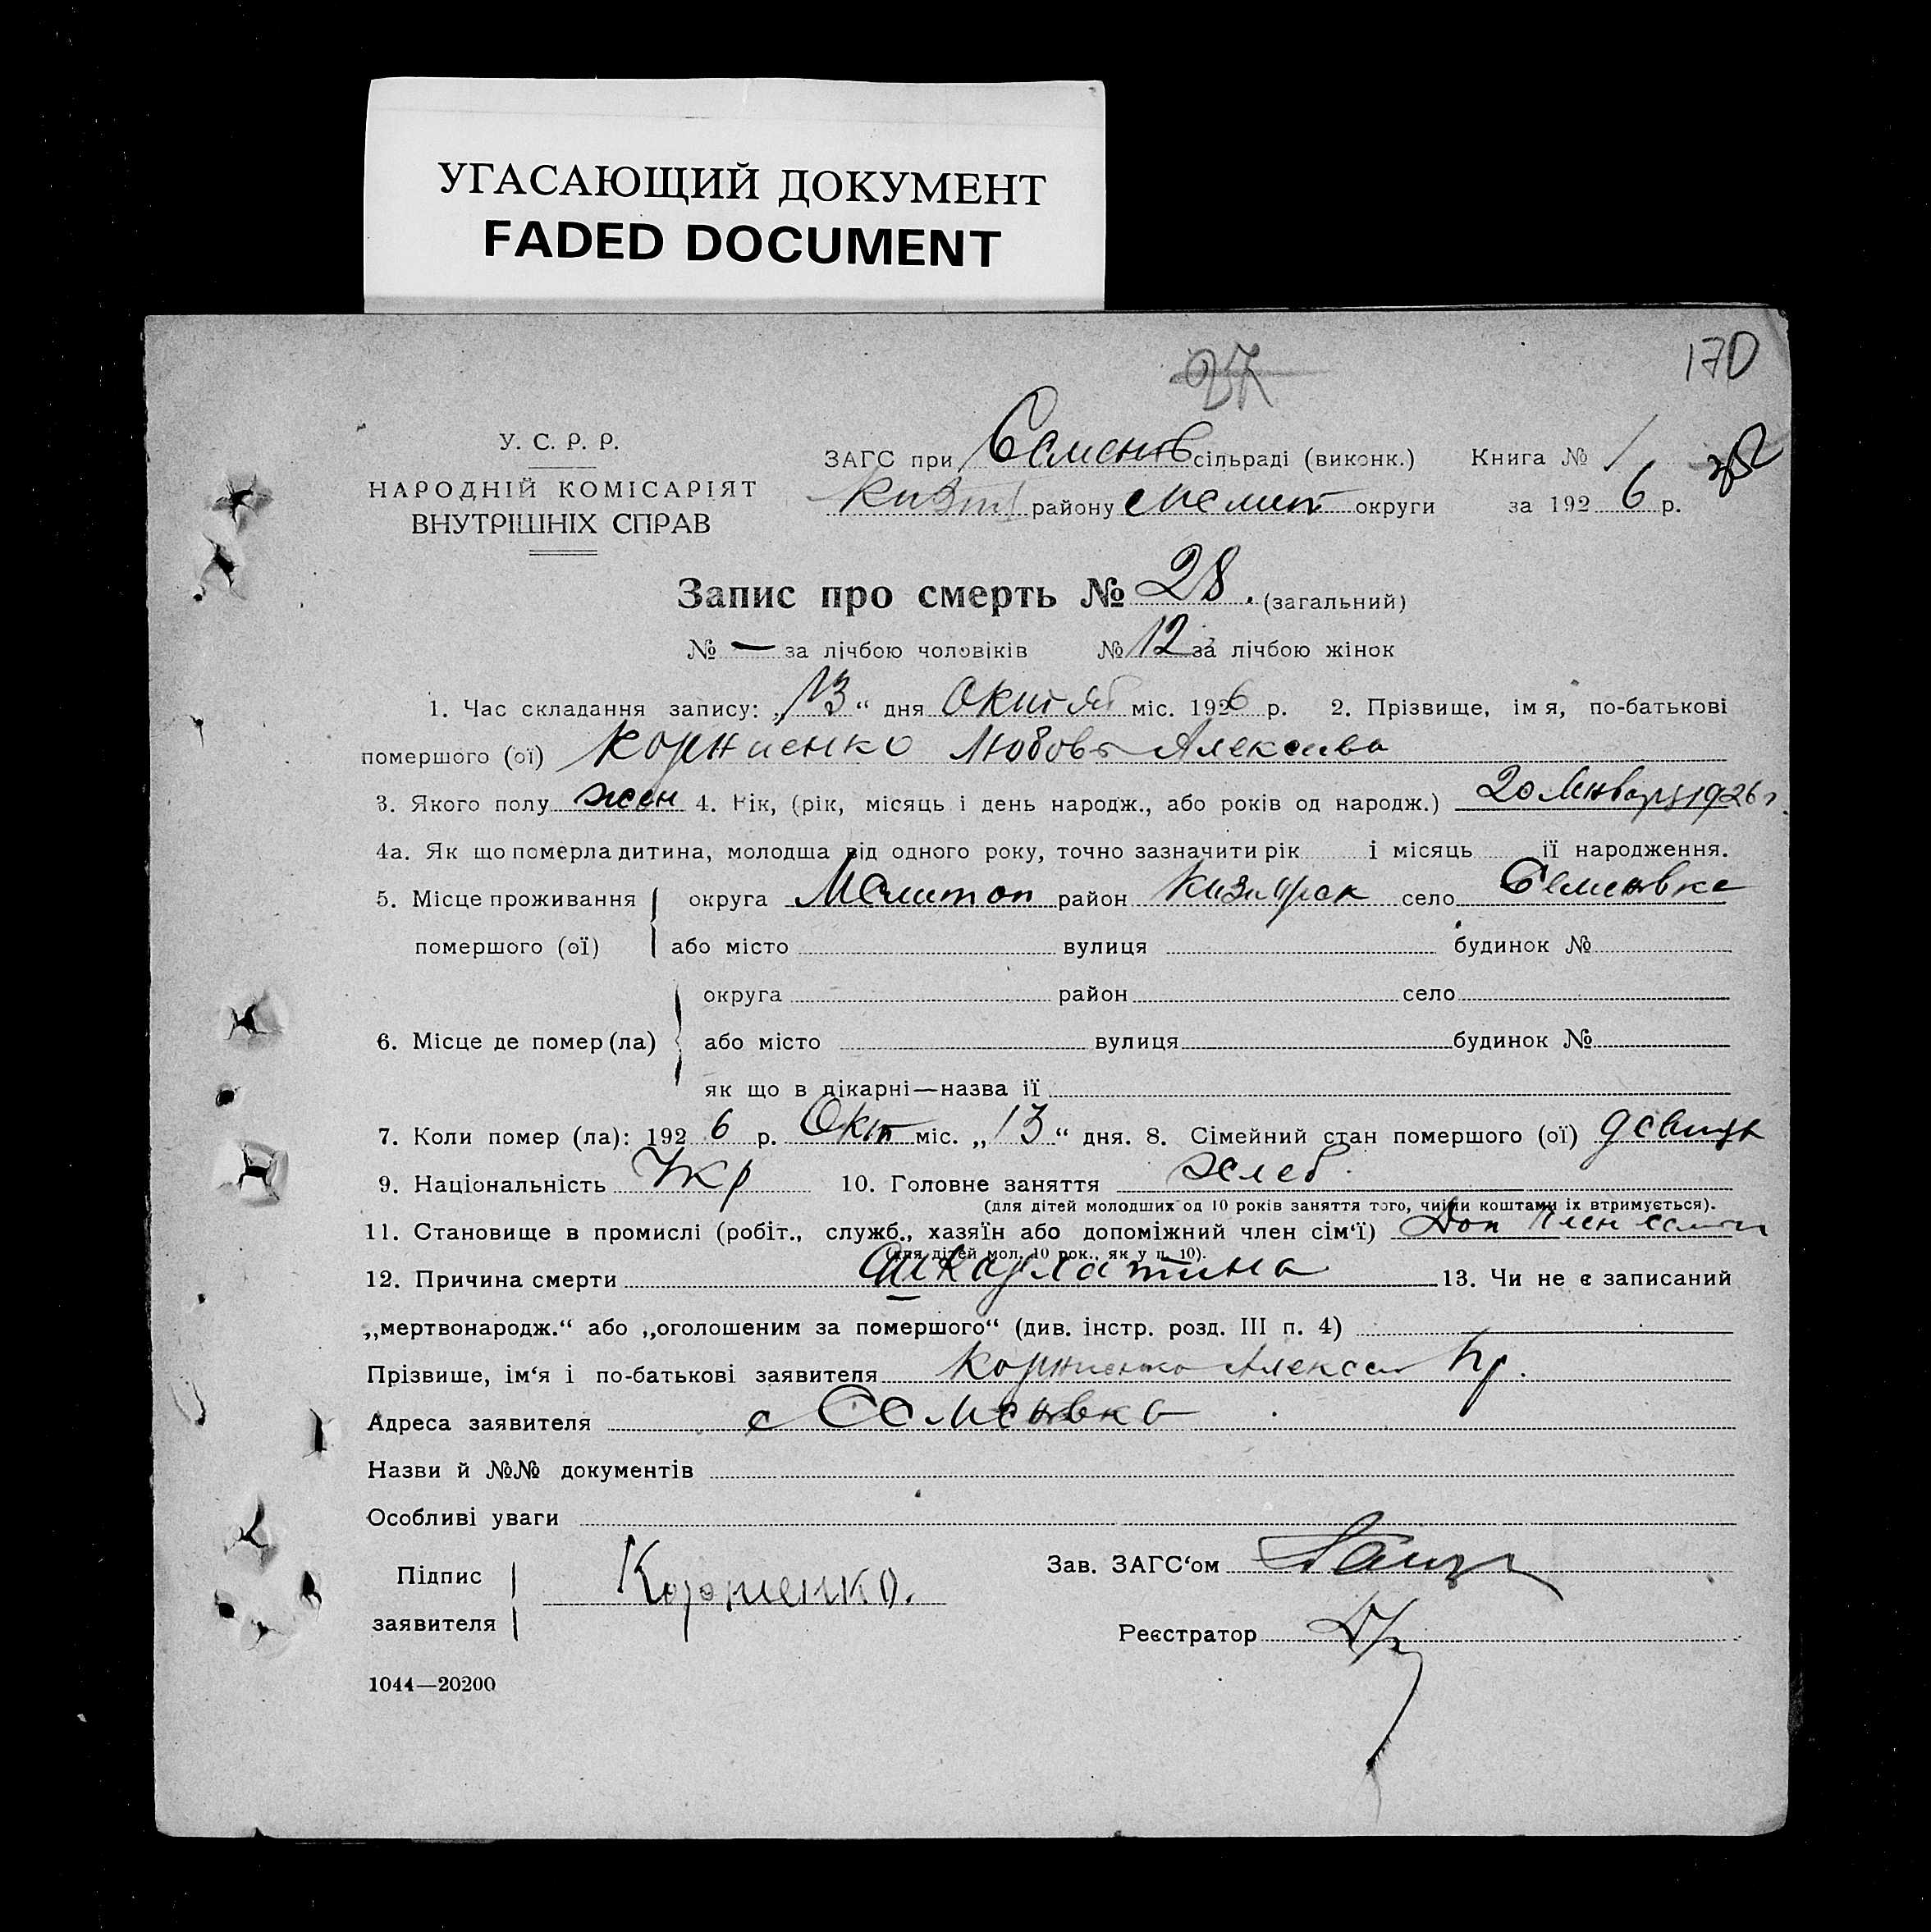 УГАСАЮЩИЙ ДОКУМЕНТ
FADED DOCUMENT
170
27
У. С. Р. Р.
НАРОДНІЙ КОМІСАРІЯТ
ВНУТРІШНІХ СПРАВ
ЗАГС при Семенов сільраді (виконк.) Книга № 1
району Мелит округи за 1926 р.
Запис про смерть № 28. (загальний)
№ — за лічбою чоловіків № 12 за лічбою жінок
1. Час складання запису: „13“ дня Октяб міс. 1926 р. 2. Прізвище, імя, по-батькові
помершого (ої) Корниенко Любовь Алексеева
3. Якого полу жен 4. Рік, (рік, місяць і день народж., або років од народж.) 20 Января 1926 г
4а. Як що померла дитина, молодша від одного року, точно зазначити рік і місяць ії народження.
5. Місце проживання округа Мелитоп район село Семеновка
помершого (ої) або місто вулиця будинок №
округа район село
6. Місце де помер (ла) або місто вулиця будинок №
як що в лікарні—назва ії
7. Коли помер (ла): 1926 р. Окт міс. „13“ дня. 8. Сімейний стан помершого (ої) девица
9. Національність Укр 10. Головне заняття хлеб.
(для дітей молодших од 10 років заняття того, чиїми коштами їх втримується).
11. Становище в промислі (робіт., служб., хазяїн або допоміжний член сім‘ї) Доп член семьи
(для дітей мол. 10 рок., як у п. 10).
12. Причина смерти Шкарлатина 13. Чи не є записаний
„мертвонародж.“ або „оголошеним за помершого“ (див. інстр. розд. III п. 4)
Прізвище, ім‘я і по-батькові заявителя Корниенко Алексей Пр.
Адреса заявителя с Семеновка
Назви й №№ документів
Особливі уваги
Підпис
заявителя Корниенко.
Зав. ЗАГС‘ом
Реєстратор
1044—20200